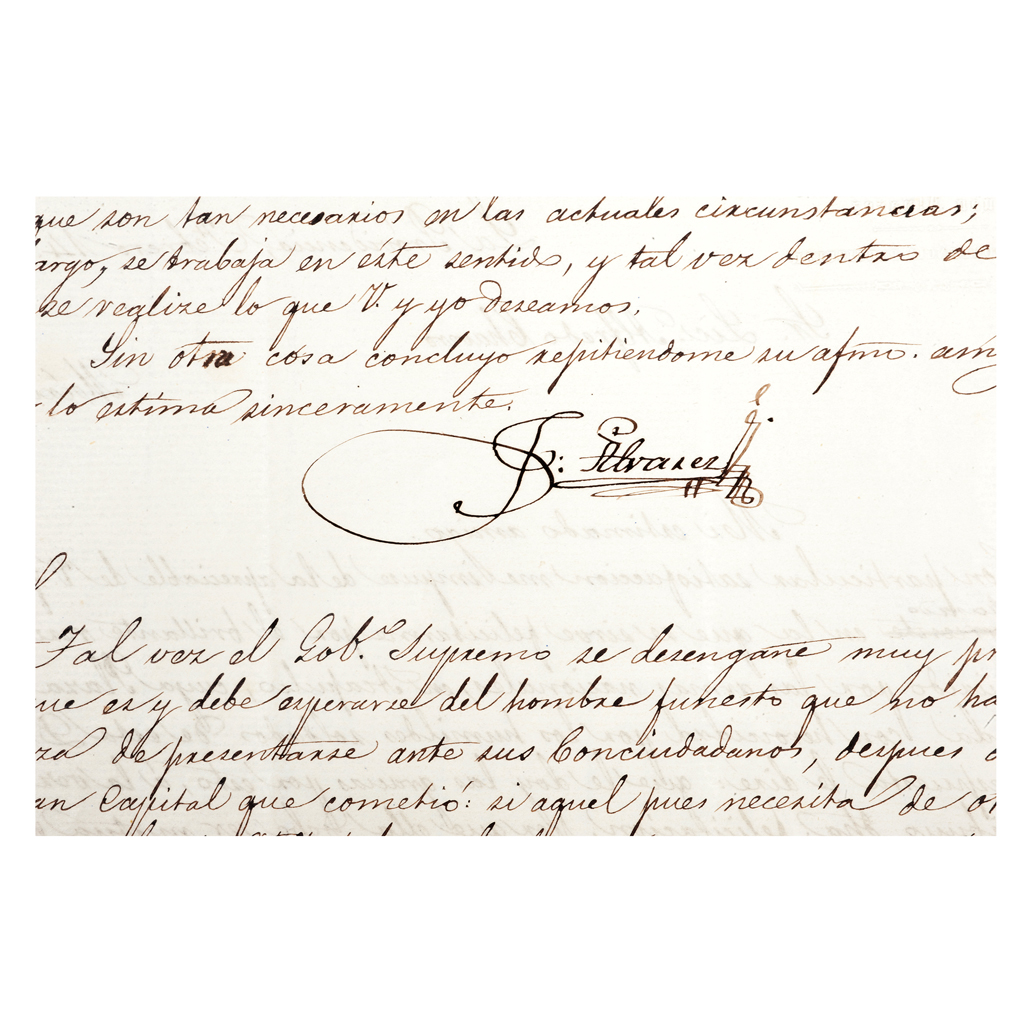 que son tan necesarios en las actuales circunstancias;
argo, se trabaja en éste sentido, y tal vez dentro de
se realize lo que V. y yo deseamos.
Sin otra cosa concluyo repitiendome su afmo. am
lo estima sinceramente.
J: Alvarez
Tal vez el Gob.no Supremo se desengañe muy pr
ue es y debe esperarse del hombre funesto que no ha
za de presentarse ante sus Conciudadanos, despues
an Capital que cometió: si aquel pues necesita de o